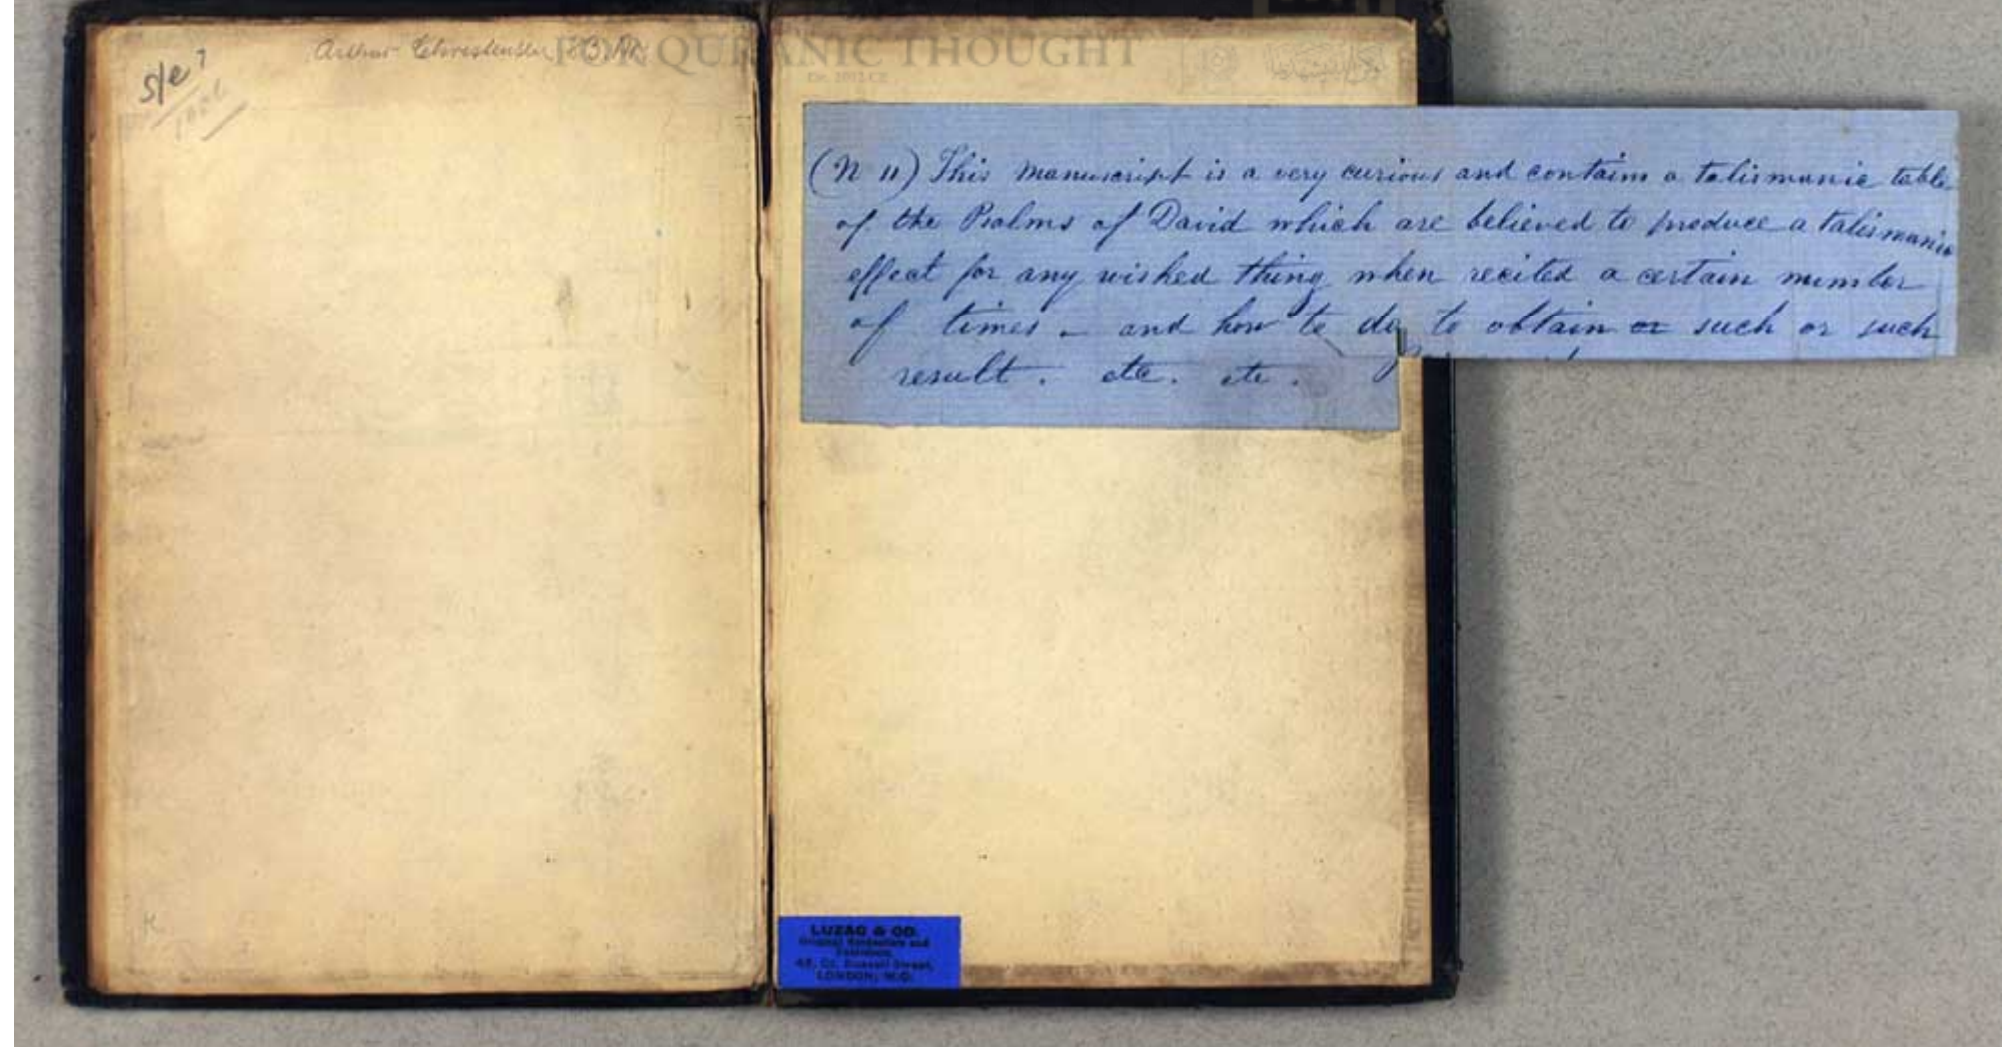 s/e?
Arthur Christensen
FOR QURANIC THOUGHT
(N 11) This manuscript is a very curious and contains a talismanic table
of the Psalms of David which are believed to produce a talismanic
effect for any wished thing when recited a certain number
of times - and how to do to obtain or such or such
result. etc. etc.
LUZAC & CO.
Oriental Booksellers and
Publishers,
46, Gt. Russell Street,
LONDON, W.C.